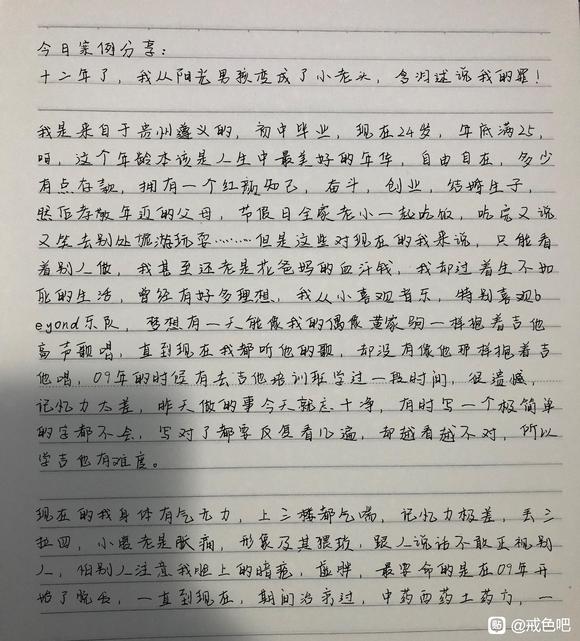 今日案例分享：
十二年了，我从阳光男孩变成了小老头，含泪述说我的罪！
我是来自于贵州遵义的，初中毕业，现在24岁，年底满25，
唉，这个年龄本该是人生中最美好的年华，自由自在，多少
有点存款，拥有一个红颜知己，奋斗，创业，结婚生子，
然后孝敬年迈的父母，节假日全家老小一起吃饭，吃完又说
又笑去别处旅游玩耍………但是这些对现在的我来说，只能看
着别人做，我甚至还老是花爸妈的血汗钱，我却过着生不如
死的生活，曾经有好多理想，我从小喜欢音乐，特别喜欢b
eyond乐队，梦想有一天能像我的偶像黄家驹一样抱着吉他
高声歌唱，直到现在我都听他的歌，却没有像他那样抱着吉
他唱，09年的时候有去吉他培训班学过一段时间，很遗憾，
记忆力太差，昨天做的事今天就忘干净，有时写一个极简单
的字都不会，写对了都要反复看几遍，却越看越不对，所以
学吉他有难度。
现在的我身体有气无力，上三楼都气喘，记忆力极差，丢三
拉四，小腿老是酸痛，形象及其猥琐，跟人说话不敢正视别
人，怕别人注意我脸上的暗疮，虚胖，最要命的是在09年开
始了脱发，一直到现在，期间治疗过，中药西药土药方，一
@戒色吧